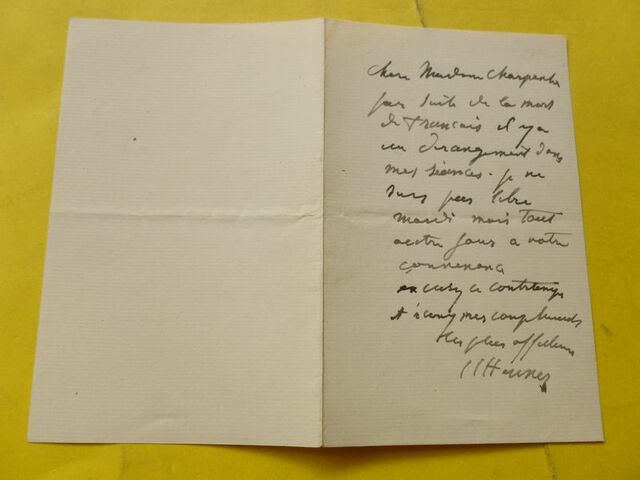 chere Madame Charpentier
par suite de la mort
de Francais il y a
un derangement dans
mes séances. je ne
suis pas libre
mardi mais tout
autre jour a votre
convenance
excusez ce contretemps
et mes compliments
les plus affectueux
JJ Henner